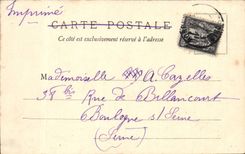 Imprimé
CARTE POSTALE
Ce côté est exclusivement réservé à l'adresse
Mademoiselle A. Cazelles
38 bis Rue de Billancourt
Boulogne s/ Seine
(Seine)